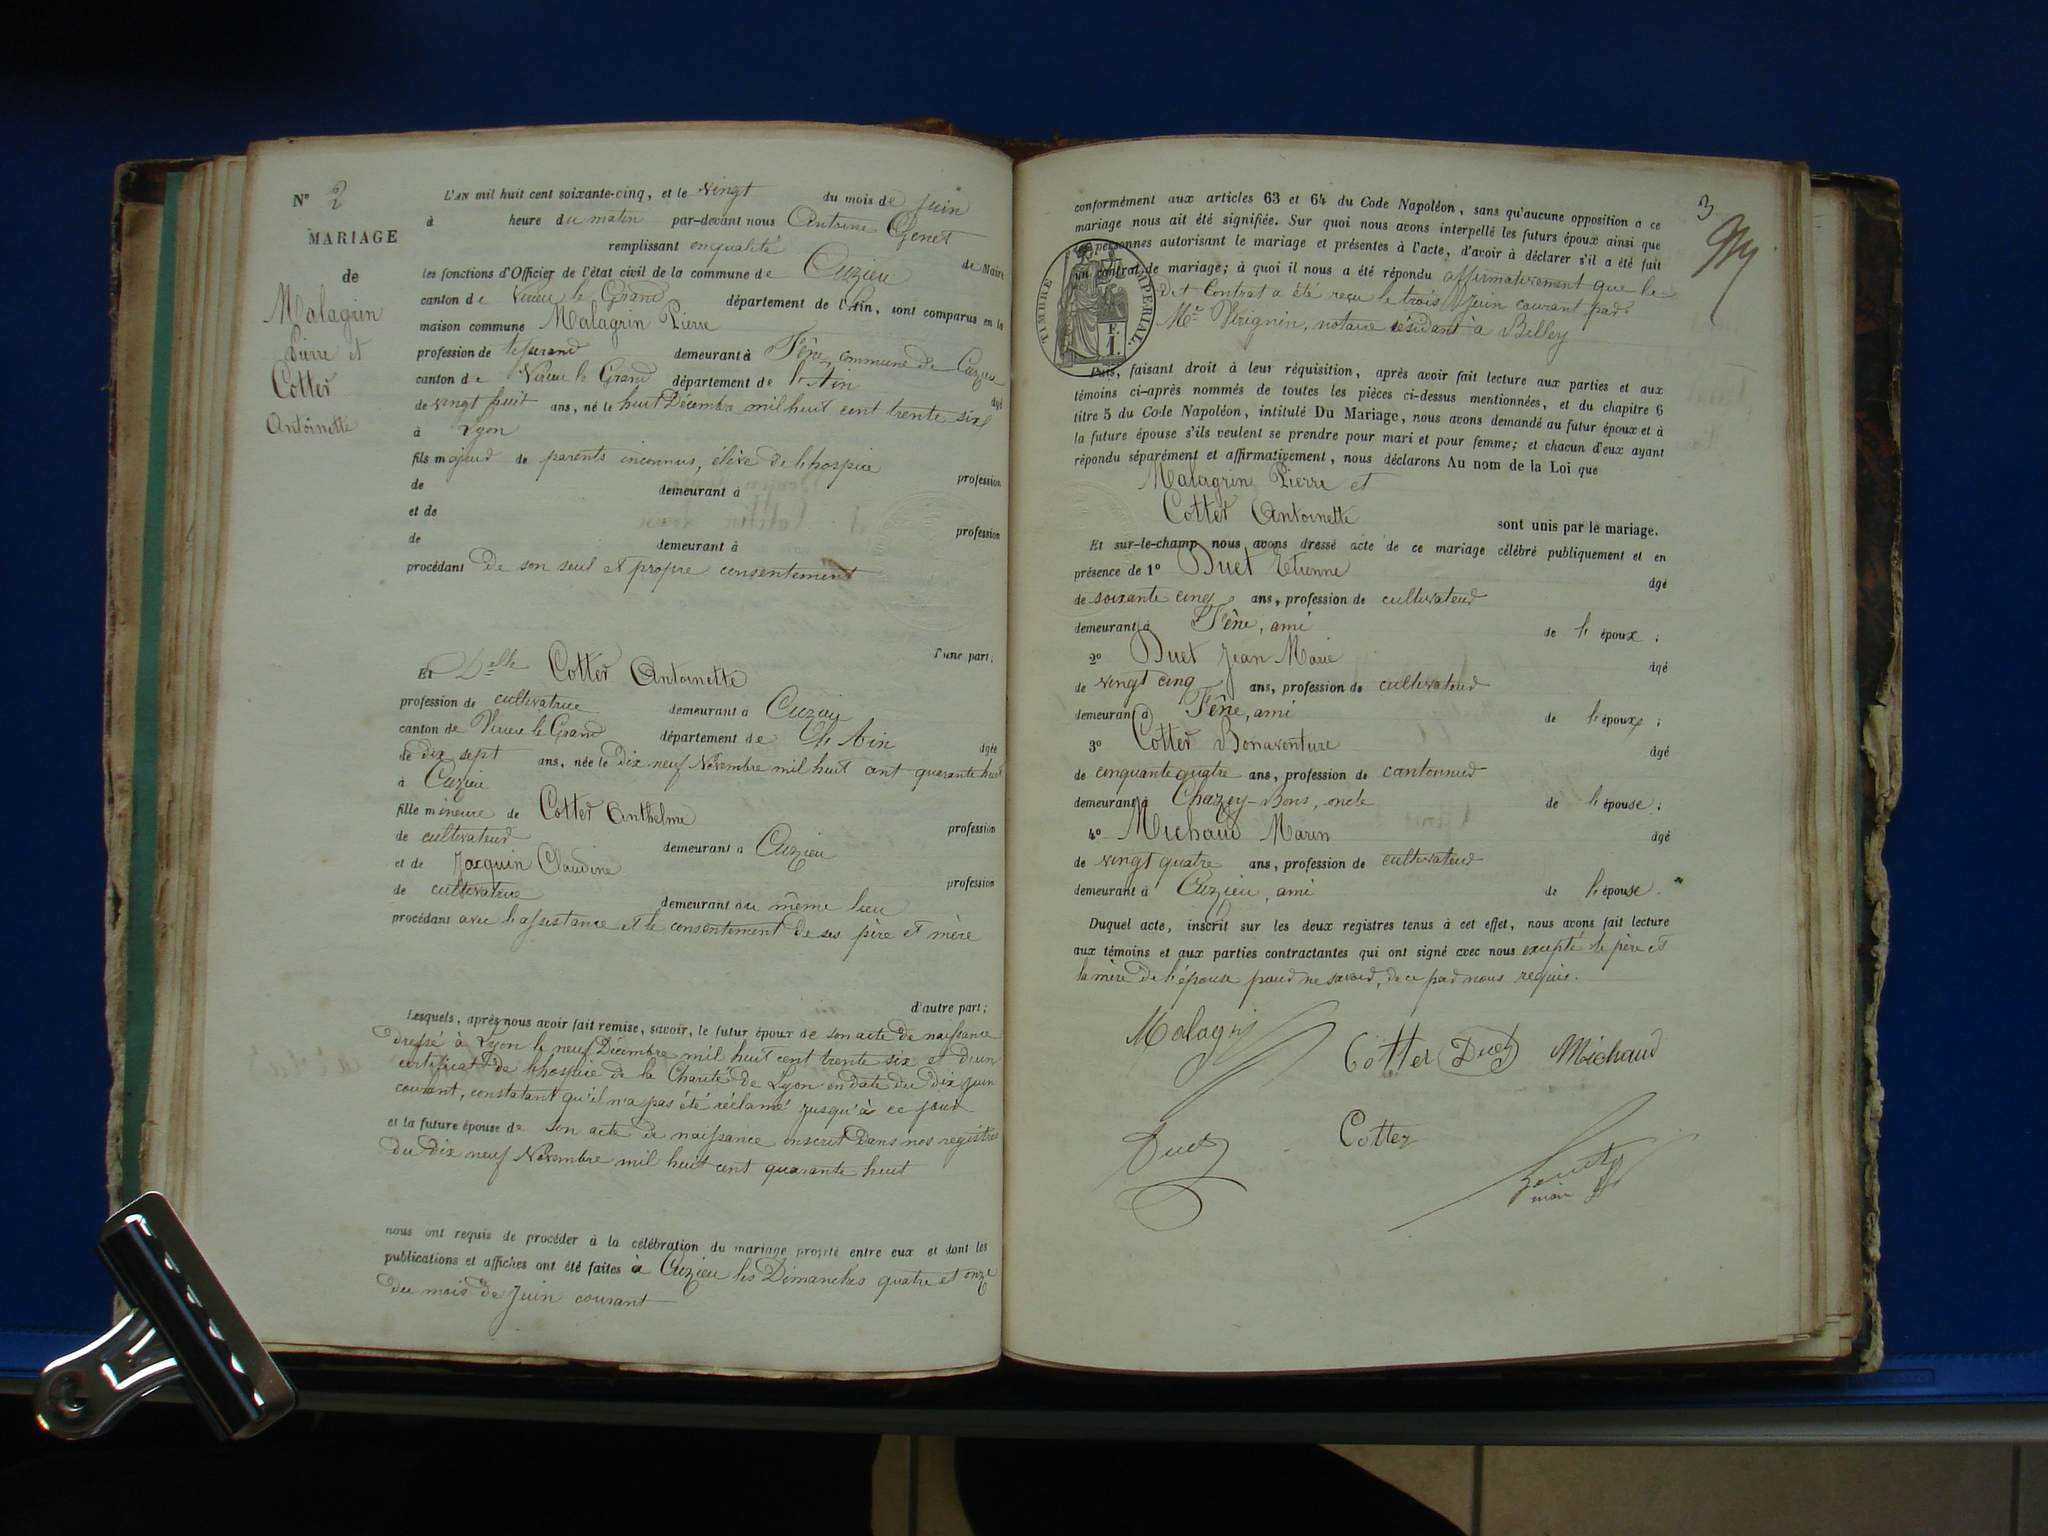 N° 2
MARIAGE
de
Malagrin
Pierre et
Cotter
Antoinette
L'AN mil huit cent soixante-cinq, et le vingt du mois de Juin
à heure du matin par-devant nous Antoine Genet
remplissant en qualité de Maire
les fonctions d'Officier de l'état civil de la commune de Cuzieu
canton de Virieu le Grand département de l'Ain, sont comparus en la
maison commune Malagrin Pierre
profession de tisserand demeurant à Fêne, commune de Cuzieu
canton de Virieu le Grand département de l'Ain âgé
de vingt huit ans, né le huit Décembre mil huit cent trente six
à Lyon
fils majeur de parents inconnus, élève de l'hospice profession
de demeurant à
et de profession
de demeurant à
procédant de son seul et propre consentement
d'une part;
Et Delle Cotter Antoinette
profession de cultivatrice demeurant à Cuzieu
canton de Virieu le Grand département de l'Ain âgée
de dix sept ans, née le dix neuf Novembre mil huit cent quarante huit
à Cuzieu
fille mineure de Cotter Anthelme profession
de cultivateur demeurant à Cuzieu
et de Jacquin Claudine profession
de cultivatrice demeurant au même lieu
procédant avec l'assistance et le consentement de ses père et mère
d'autre part;
Lesquels, après nous avoir fait remise, savoir, le futur époux de son acte de naissance
dressé à Lyon le neuf Décembre mil huit cent trente six et d'un
certificat de l'hospice de la Charité de Lyon en date du dix Juin
courant, constatant qu'il n'a pas été réclamé jusqu'à ce jour
et la future épouse de son acte de naissance inscrit dans nos registres
du dix neuf Novembre mil huit cent quarante huit
nous ont requis de procéder à la célébration du mariage projeté entre eux et dont les
publications et affiches ont été faites à Cuzieu les Dimanches quatre et onze
du mois de Juin courant
3
conformément aux articles 63 et 64 du Code Napoléon, sans qu'aucune opposition a ce
mariage nous ait été signifiée. Sur quoi nous avons interpellé les futurs époux ainsi que
les personnes autorisant le mariage et présentes à l'acte, d'avoir à déclarer s'il a été fait
un contrat de mariage; à quoi il nous a été répondu affirmativement que le
dit Contrat a été reçu le trois Juin courant par
Me Vérignin, notaire résidant à Belley
TIMBRE IMPÉRIAL.
F.
1.
Puis, faisant droit à leur réquisition, après avoir fait lecture aux parties et aux
témoins ci-après nommés de toutes les pièces ci-dessus mentionnées, et du chapitre 6
titre 5 du Code Napoléon, intitulé Du Mariage, nous avons demandé au futur époux et à
la future épouse s'ils veulent se prendre pour mari et pour femme; et chacun d'eux ayant
répondu séparément et affirmativement, nous déclarons Au nom de la Loi que
Malagrin Pierre et
Cotter Antoinette sont unis par le mariage.
Et sur-le-champ nous avons dressé acte de ce mariage célébré publiquement et en
présence de 1° Duet Etienne âgé
de soixante cinq ans, profession de cultivateur
demeurant à Fêne, ami de l'époux;
2° Duet Jean Marie âgé
de vingt cinq ans, profession de cultivateur
demeurant à Fêne, ami de l'époux;
3° Cotter Bonaventure âgé
de cinquante quatre ans, profession de cantonnier
demeurant à Chazey-Bons, oncle de l'épouse;
4° Michaud Marin âgé
de vingt quatre ans, profession de cultivateur
demeurant à Cuzieu, ami de l'épouse.
Duquel acte, inscrit sur les deux registres tenus à cet effet, nous avons fait lecture
aux témoins et aux parties contractantes qui ont signé avec nous excepté le père et
la mère de l'épouse pour ne savoir, de ce par nous requis.
Malagrin
Cotter Duet Michaud
Duet
Cotter
Genet
maire